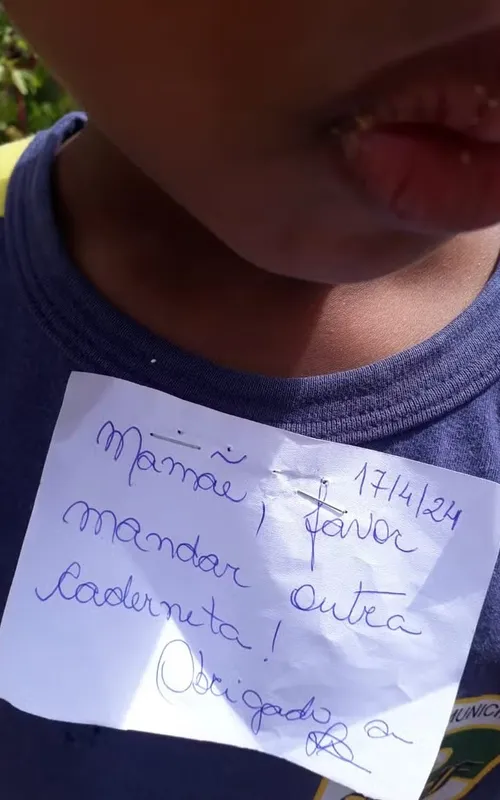 17/4/24
Mamãe, favor
mandar outra
Caderneta!
Obrigado, a
MUNIC